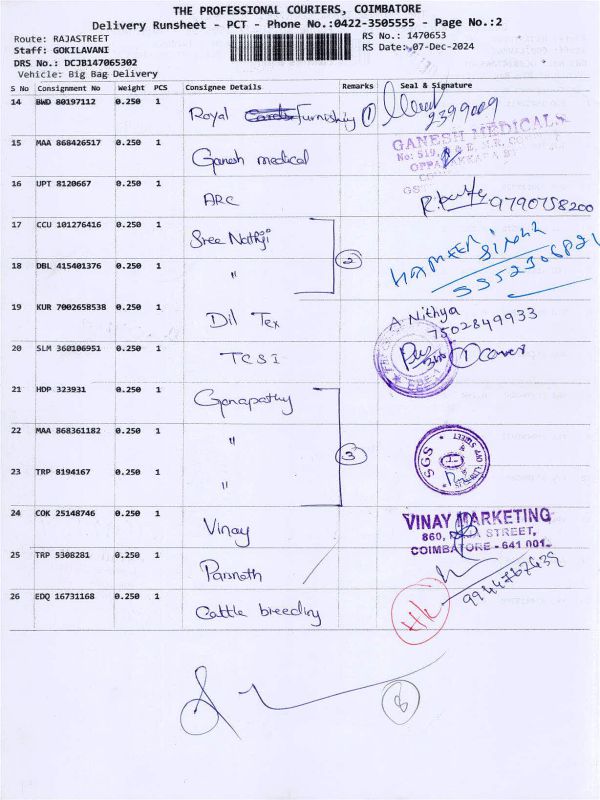 THE PROFESSIONAL COURIERS, COIMBATORE
Delivery Runsheet - PCT - Phone No.:0422-3505555 - Page No.:2
Route: RAJASTREET
RS No.: 1470653
Staff: GOKILAVANI
RS Date: 07-Dec-2024
DRS No.: DCJB147065302
Vehicle: Big Bag Delivery
S No Consignment No Weight PCS Consignee Details Remarks Seal & Signature
14 BWD 80197112 0.250 1 Royal Furnishing 1
15 MAA 868426517 0.250 1 Ganesh medical GANESH MEDICALS
16 UPT 8120667 0.250 1 ARC 9790758200
17 CCU 101276416 0.250 1 Sree Nathji
18 DBL 415401376 0.250 1 " 2
19 KUR 7002658538 0.250 1 Dil Tex A Nithya
7502849933
20 SLM 360106951 0.250 1 TCSI 1 cover
21 HDP 323931 0.250 1 Ganapathy
22 MAA 868361182 0.250 1 " 3 SGS
23 TRP 8194167 0.250 1 "
24 COK 25148746 0.250 1 Vinay VINAY MARKETING
860, STREET,
COIMBATORE - 641 001.
25 TRP 5308281 0.250 1 Parnath
26 EDQ 16731168 0.250 1 Cattle breeding 9944767439
8